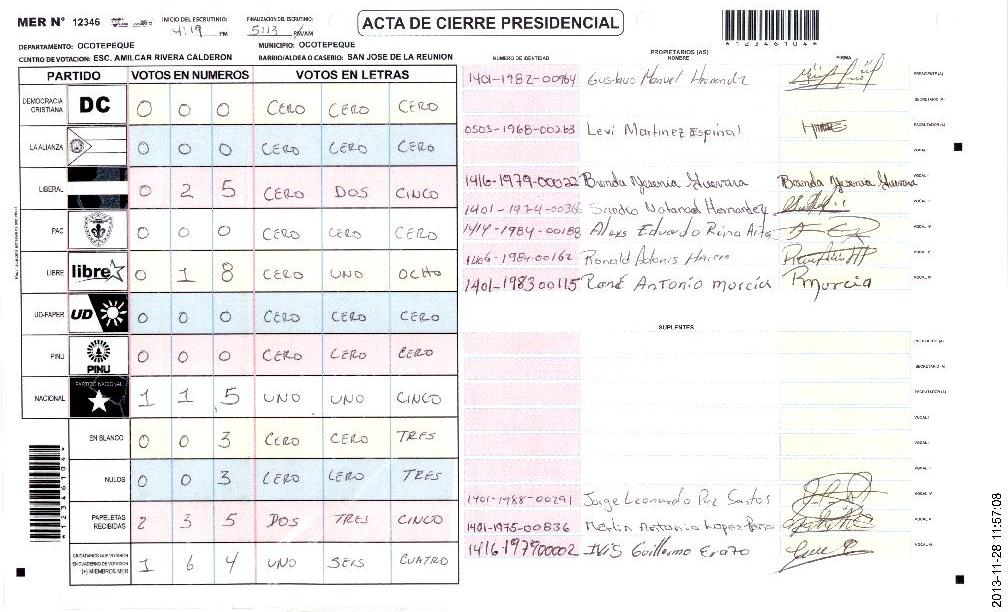 MER Nº 12346
INICIO DEL ESCRUTINIO: 4:19 PM
FINALIZACION DEL ESCRUTINIO: 5:13 PM/AM
ACTA DE CIERRE PRESIDENCIAL
*12346104*
DEPARTAMENTO: OCOTEPEQUE
MUNICIPIO: OCOTEPEQUE
CENTRO DE VOTACION: ESC. AMILCAR RIVERA CALDERON
BARRIO/ALDEA O CASERIO: SAN JOSE DE LA REUNION
PARTIDO VOTOS EN NUMEROS VOTOS EN LETRAS
DEMOCRACIA CRISTIANA DC 0 0 0 CERO CERO CERO
LA ALIANZA 0 0 0 CERO CERO CERO
LIBERAL 0 2 5 CERO DOS CINCO
PAC 0 0 0 CERO CERO CERO
LIBRE libre 0 1 8 CERO UNO OCHO
UD-FAPER UD 0 0 0 CERO CERO CERO
PINU PINU 0 0 0 CERO CERO CERO
NACIONAL PARTIDO NACIONAL 1 1 5 UNO UNO CINCO
EN BLANCO 0 0 3 CERO CERO TRES
NULOS 0 0 3 CERO CERO TRES
PAPELETAS RECIBIDAS 2 3 5 DOS TRES CINCO
CIUDADANOS QUE VOTARON EN CUADERNO DE VOTACION (+) MIEMBROS MER 1 6 4 UNO SEIS CUATRO
*12346104*
PROPIETARIOS (AS)
NUMERO DE IDENTIDAD NOMBRE FIRMA
1401-1982-00964 Gustavo Manuel PRESIDENTE (A)
SECRETARIO (A)
0503-1968-00263 Levi Martinez Espinal ESCRUTADOR (A)
VOCAL I
1416-1979-00022 Brenda Yesenia Guevara Brenda Yesenia Guevara
Sandro Natanael Hernandez
1414-1984-00188 Alexs Eduardo Reina
Ronald Adonis
1401-1983 00115 René Antonio murcia Rmurcia
SUPLENTES
PRESIDENTE (A)
SECRETARIO (A)
ESCRUTADOR (A)
VOCAL I
1401-1988-00291 Jorge Leonardo Paz Santos
1401-1975-00836 Merlin Antonio Lopez
1416 197900002 Guillermo Erazo
2013-11-28 11:57:08